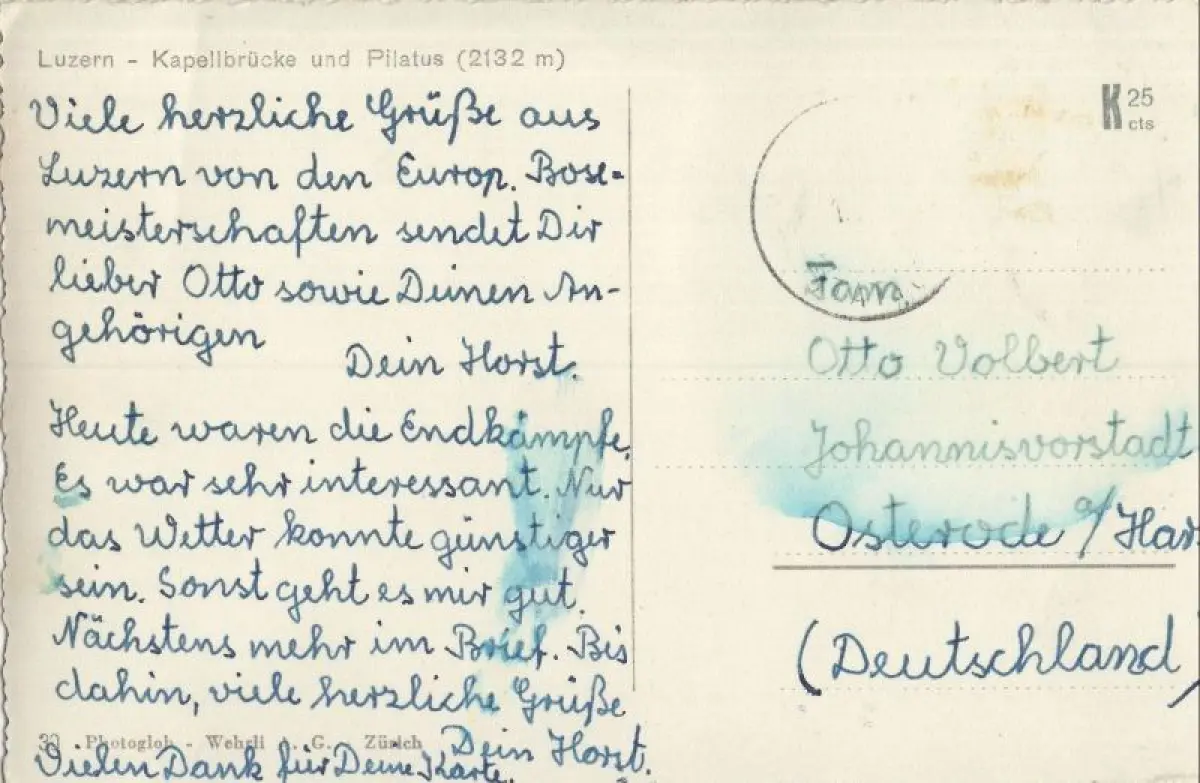 Luzern - Kapellbrücke und Pilatus (2132 m)
Viele herzliche Grüße aus
Luzern von den Europ. Bose-
meisterschaften sendet Dir
lieber Otto sowie Deinen An-
gehörigen
Dein Horst.
Heute waren die Endkämpfe.
Es war sehr interessant. Nur
das Wetter konnte günstiger
sein. Sonst geht es mir gut.
Nächstens mehr im Brief. Bis
dahin, viele herzliche Grüße
Dein Horst.
Vielen Dank für Deine Karte.
Photoglob - Wehrli A. G. - Zürich
K 25
cts
Fam.
Otto Volbert
Johannisvorstadt
Osterode a/Har
(Deutschland)